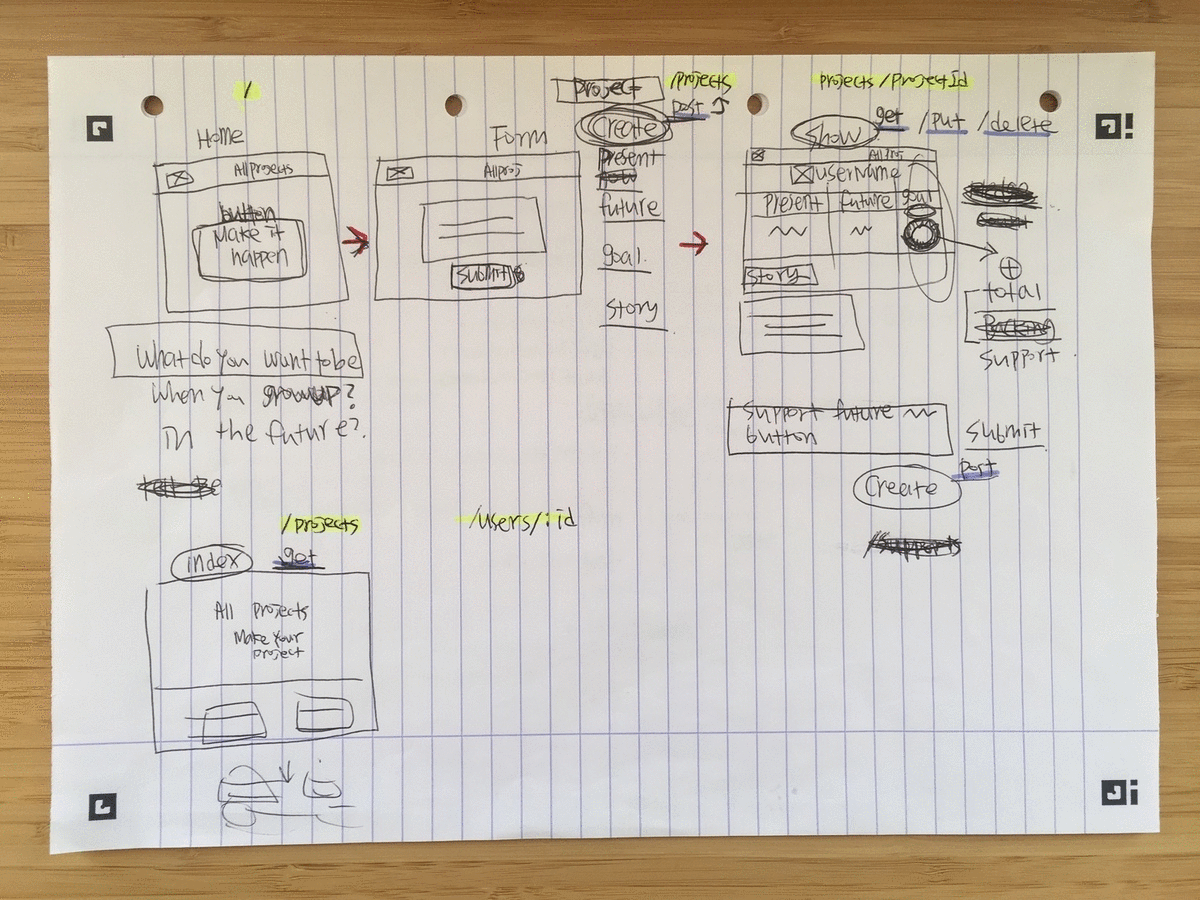 /
Home
All projects
button
Make it
happen
What do you want to be
when you grow up?
in the future?
Form
All proj
Submit
project
/projects
post
Create
Present
now
future
goal
story
projects/projectid
show
get /put /delete
All proj
username
Present future goal
story
total
Backing
support
support future
button
submit
Create
post
/supports
/projects
index
get
All projects
Make your
project
/users/:id